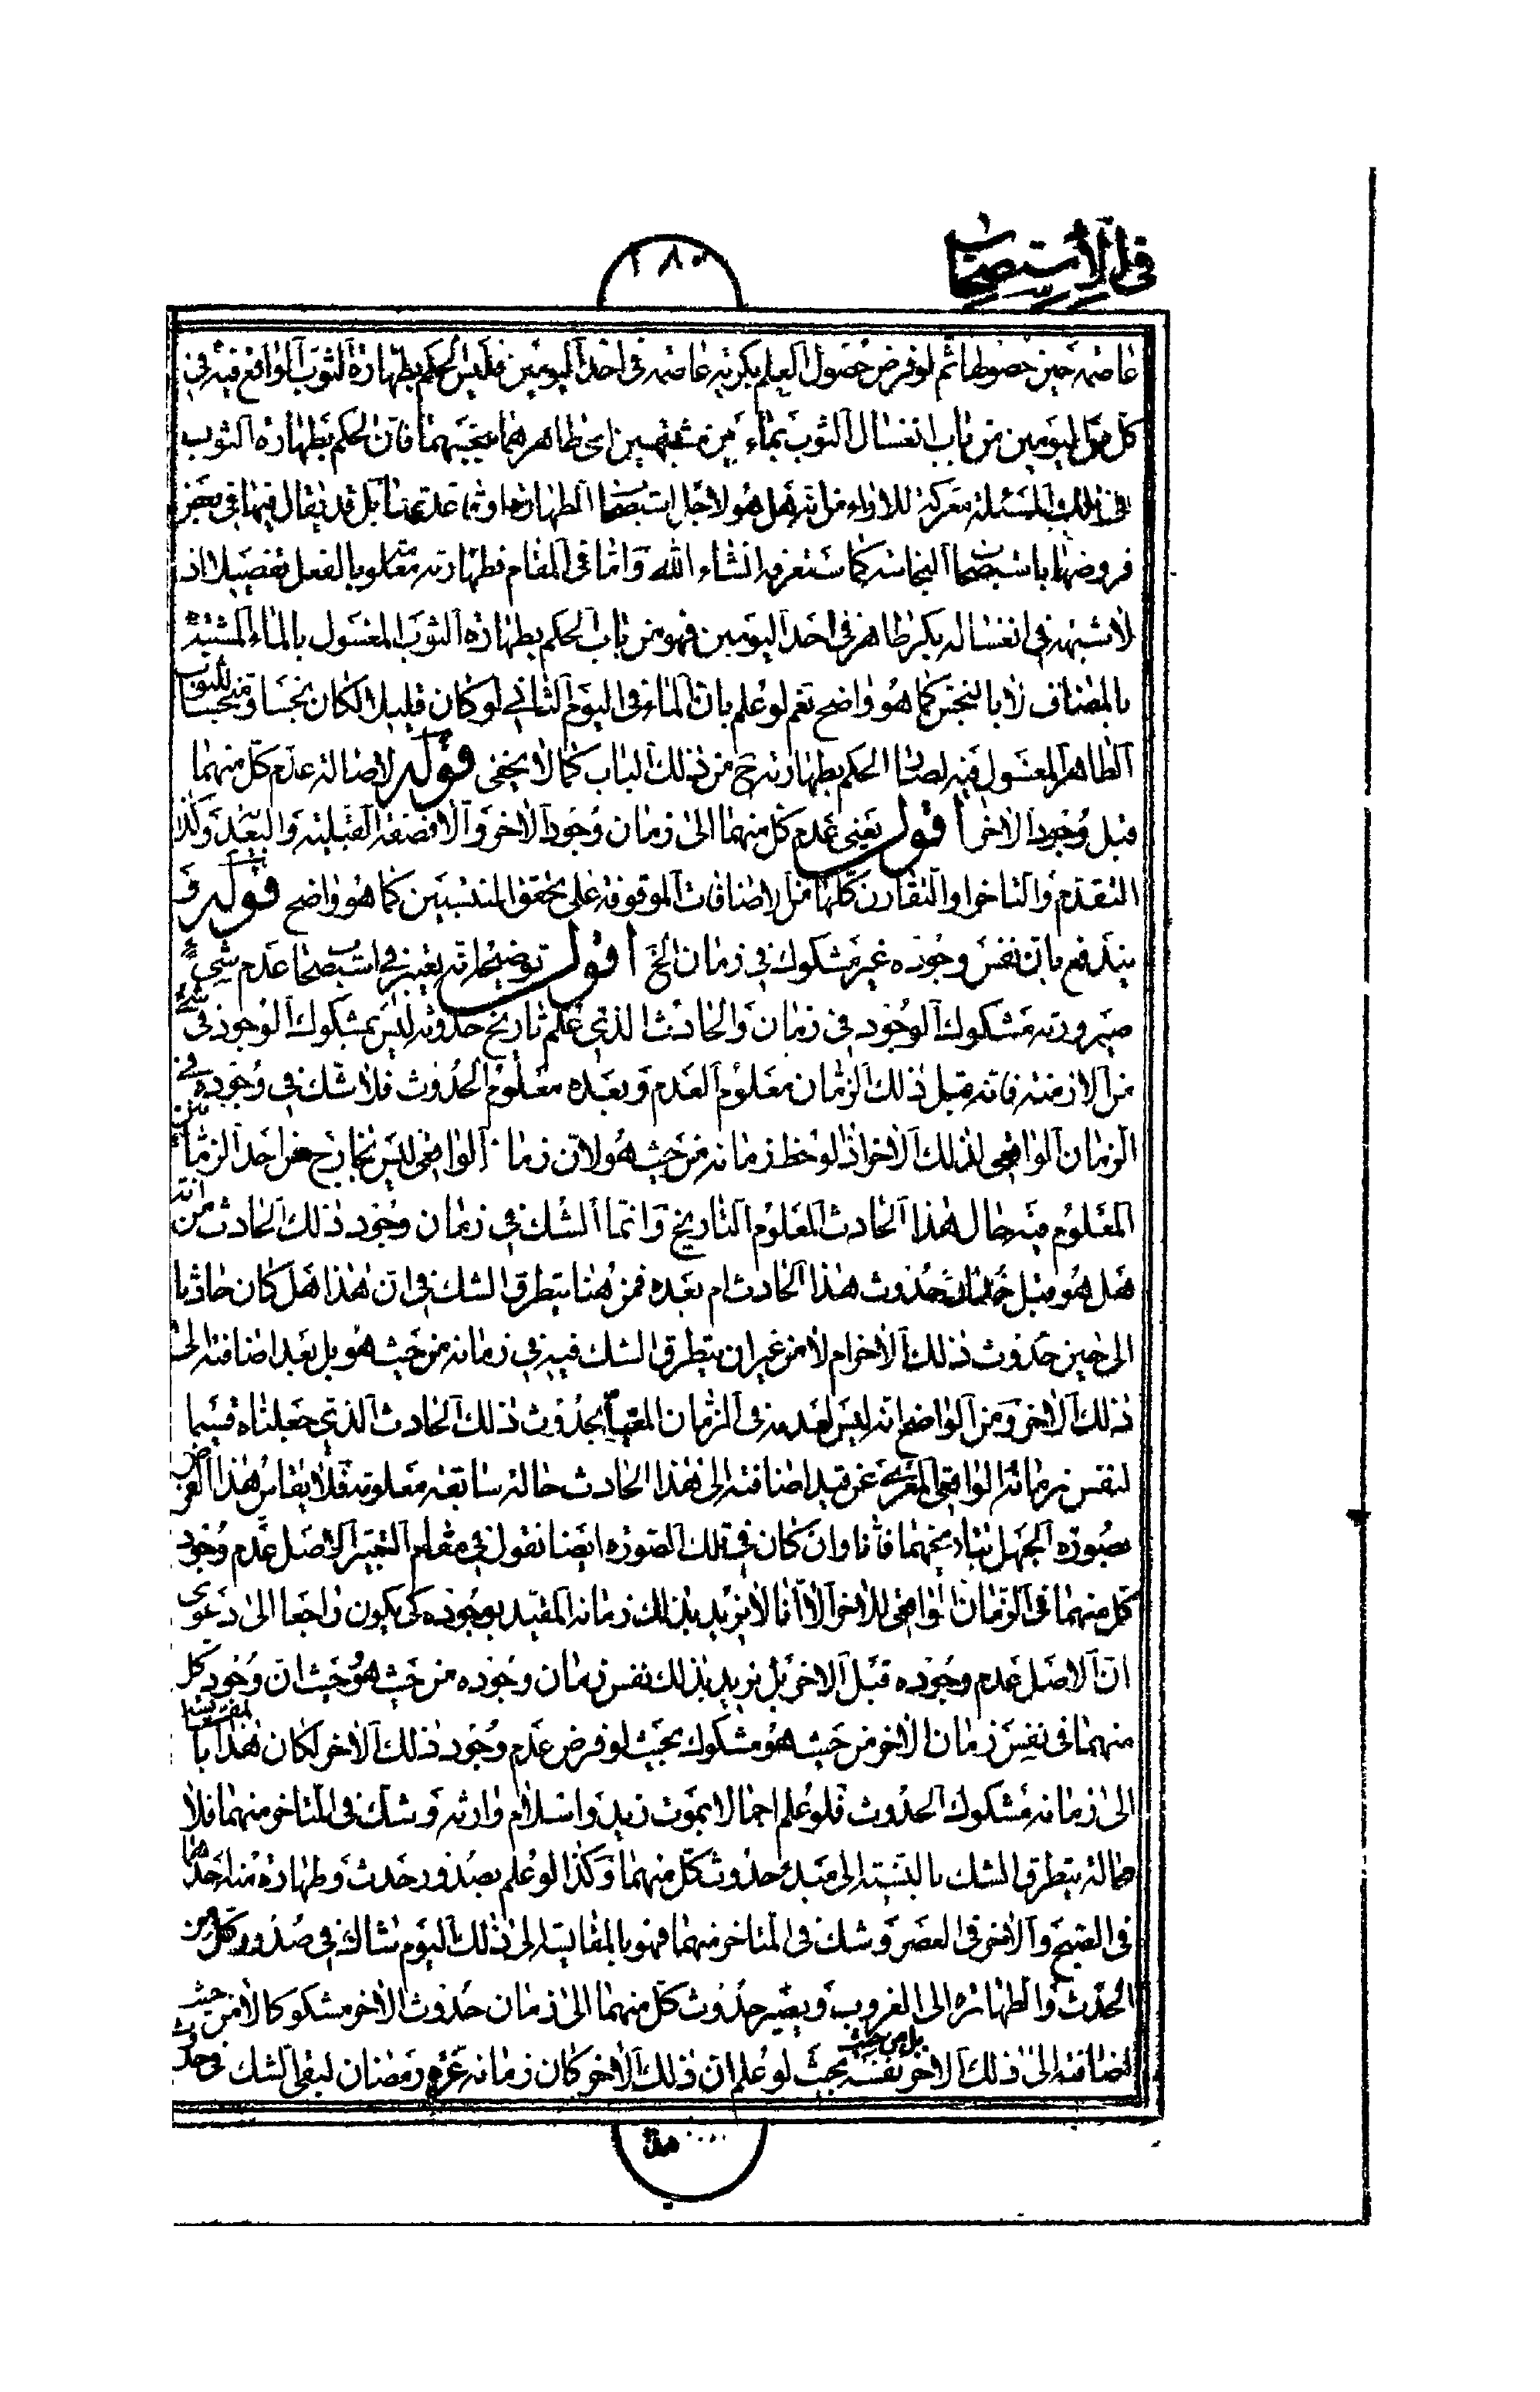 في الاستصحاب
١٨٠
عاصمه حين حصولها ثم لو فرض حصول العلم بكريته عاصمة في احد اليومين فليس الحكم بطهارة الثوب الواقع فيه في
كل من اليومين من باب انغسال الثوب بماءين مشتبهين اى طاهرهما بنجسهما فان الحكم بطهارة الثوب
في تلك المسئلة معركة للاراء من انه هل هو لاجل استصحاب الطهارة او قاعدتها بل قد يقال فيها في بعض
فروضها باستصحاب النجاسة كما ستعرفه انشاء الله واما في المقام فطهارته معلومة بالفعل تفصيلا اذ
لا شبهة في انغساله بكر طاهر في احد اليومين فهو من باب الحكم بطهارة الثوب المغسول بالماء المشتبه
بالمضاف لا بالنجس كما هو واضح نعم لو علم بان الماء في اليوم الثاني لو كان قليلا لكان نجسا ومنجسا للثوب
الطاهر المغسول فيه لصار الحكم بطهارته ح من ذلك الباب كما لا يخفى قوله لاصالة عدم كل منهما
قبل وجود الاخر اقول يعنى عدم كل منهما الى زمان وجود الاخر والا فصفة القبلية والبعد وكذا
التقدم والتاخر والتقارن كلها من الاضافات الموقوفة على تحقق المنتسبين كما هو واضح قوله و
يندفع بان نفس وجوده غير مشكوك في زمان الخ اقول توضيحه انه يعتبر في استصحاب عدم شيء
صيرورته مشكوك الوجود في زمان والحادث الذي علم تاريخ حدوثه ليس بمشكوك الوجود في شيء
من الازمنة فانه قبل ذلك الزمان معلوم العدم وبعده معلوم الحدوث فلا شك في وجوده في
الزمان الواقعي لذلك الاخر اذا لوحظ زمانه من حيث هو لان زمانه الواقعي ليس بخارج عن احد الزمانين
المعلوم فيه حال هذا الحادث المعلوم التاريخ وانما الشك في زمان وجود ذلك الحادث من انه
هل هو قبل زمان حدوث هذا الحادث ام بعده فمن هنا يتطرق الشك في ان هذا هل كان حادثا
الى حين حدوث ذلك الاخر ام لا من غير ان يتطرق الشك فيه في زمانه من حيث هو بل بعد اضافته الى
ذلك الاخر ومن الواضح انه ليس لعدمه في الزمان المقيد بحدوث ذلك الحادث الذي جعلناه قسيما
لنفس زمانه الواقعي المعرى عن قيد اضافته الى هذا الحادث حالة سابقة معلومة فلا يقاس هذا الفرض
بصورة الجهل بتاريخهما فانا وان كان في تلك الصورة ايضا نقول في مقام التعبير الاصل عدم وجود
كل منهما في الزمان الواقعي للاخر الا انا لا نريد بذلك زمانه المقيد بوجوده كى يكون راجعا الى دعوى
ان الاصل عدم وجوده قبل الاخر بل نريد بذلك نفس زمان وجوده من حيث هو حيث ان وجود كل
منهما في نفس زمان الاخر من حيث هو مشكوك بحيث لو فرض عدم وجود ذلك الاخر لكان هذا بالمقايسة
الى زمانه مشكوك الحدوث فلو علم اجمالا بموت زيد واسلام وارثه وشك في المتاخر منهما فلا
محالة يتطرق الشك بالنسبة الى مبدء حدوث كل منهما وكذا لو علم بصدور حدث وطهارة منه احدهما
في الصبح والاخر في العصر وشك في المتاخر منهما فهو بالمقايسة الى ذلك اليوم شاك في صدور كل من
الحدث والطهارة الى الغروب ويصير حدوث كل منهما الى زمان حدوث الاخر مشكوكا لا من حيث
اضافته الى ذلك الاخر بل من حيث نفسه بحيث لو علم ان ذلك الاخر كان زمانه غرة رمضان لبقى الشك في حدوث
هذا